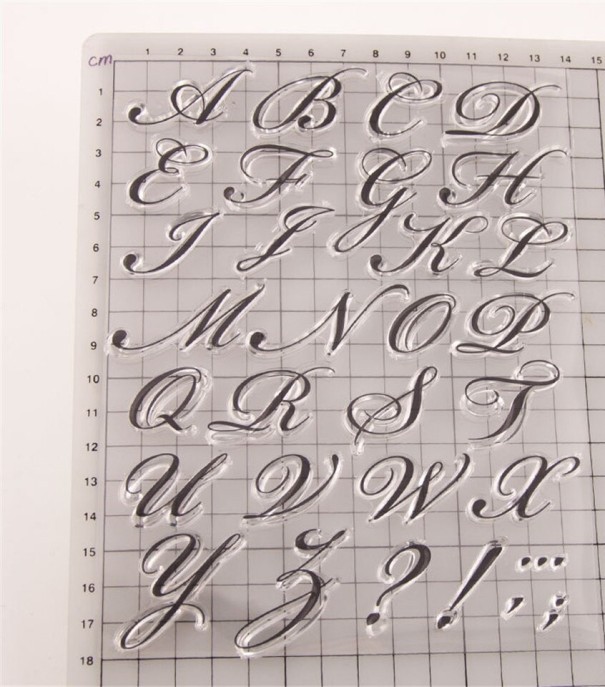 1 2 3 4 5 6 7 8 9 10 11 12 13 14 15
cm
1 A B C D
2
3
4 E F G H
5
6 I J K L
7
8
9 M N O P
10
11 Q R S T
12
13 U V W X
14
15
16 Y Z ? ! ... , ;
17
18